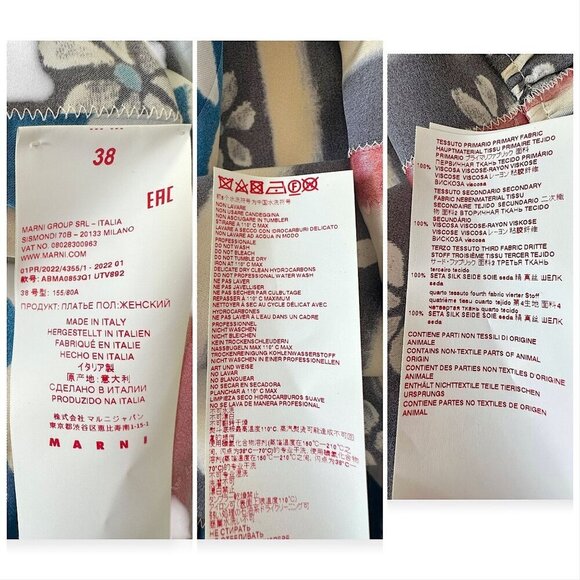 38
EAC
MARNI GROUP SRL – ITALIA
SISMONDI 70B – 20133 MILANO
VAT NO. 08028300963
WWW.MARNI.COM
01PR/2022/4355/1 - 2022 01
款号: ABMA0853Q1 UTV892
38 号型: 155/80A
ПРОДУКТ: ПЛАТЬЕ ПОЛ:ЖЕНСКИЙ
MADE IN ITALY
HERGESTELLT IN ITALIEN
FABRIQUÉ EN ITALIE
HECHO EN ITALIA
イタリア製
原产地: 意大利
СДЕЛАНО В ИТАЛИИ
PRODUZIDO NA ITALIA
株式会社 マルニジャパン
東京都渋谷区恵比寿南1-15-1
MARNI
NON LAVARE
NON USARE CANDEGGINA
NON ASCIUGARE IN TUMBLER
STIRARE A 110° C MAX
LAVARE A SECCO CON IDROCARBURI DELICATO
NON LAVARE AD ACQUA IN MODO
PROFESSIONALE
DO NOT WASH
DO NOT BLEACH
DO NOT TUMBLE DRY
IRON AT 110° C MAX
DELICATE DRY CLEAN HYDROCARBONS
DO NOT PROFESSIONALLY WET CLEAN
NE PAS LAVER
NE PAS UTILISER D'EAU
NE PAS SÉCHER PAR CULBUTAGE
REPASSER À 110° C MAXIMUM
NETTOYER A SEC AU CYCLE DÉLICAT AVEC
HYDROCARBONES
NE PAS LAVER À L'EAU DANS UN CADRE
PROFESSIONNEL
NICHT WASCHEN
NICHT BLEICHEN
KEIN TROCKENSCHLEUDERN
NASSBÜGELN MAX 110° C MAX
TROCKENREINIGUNG KOHLENWASSERSTOFF
NICHT EINNEHMEN PROFESSIONELLEN
ART UND WEISE
NO LAVAR
NO BLANQUEAR
NO SECAR EN SECADORA
PLANCHAR A 110° C MAX
LIMPIEZA SECO HIDROCARBUROS SUAVE
NO SE LAVA DE MANERA PROFESIONAL
不可水洗
不可漂白
不可翻转干燥
НЕ СТИРАТЬ
НЕ ОТБЕЛИВАТЬ
TESSUTO PRIMARIO PRIMARY FABRIC
HAUPTMATERIAL TISSU PRIMAIRE TEJIDO
PRIMARIO プライマリファブリック 面料
ПЕРВИЧНАЯ ТКАНЬ TECIDO PRIMÁRIO
100% VISCOSA VISCOSE-RAYON VISKOSE
VISCOSE VISCOSA レーヨン 粘胶纤维
ВИСКОЗА viscosa
TESSUTO SECONDARIO SECONDARY
FABRIC NEBENMATERIAL TISSU
SECONDAIRE TEJIDO SECUNDARIO 二次織
物 面料2 ВТОРИЧНАЯ ТКАНЬ TECIDO
SECUNDÁRIO
100% VISCOSA VISCOSE-RAYON VISKOSE
VISCOSE VISCOSA レーヨン 粘胶纤维
ВИСКОЗА viscosa
TERZO TESSUTO THIRD FABRIC DRITTE
STOFF TROISIÈME TISSU TERCER TEJIDO
サード・ファブリック 面料3 ТРЕТЬЯ ТКАНЬ
terceiro tecido
100% SETA SILK SEIDE SOIE seda 絹 真丝 ШЕЛК
seda
quarto tessuto fourth fabric vierter Stoff
quatrième tissu cuarto tejido 第4生地
100% SETA SILK SEIDE SOIE seda 絹 真丝 ШЕЛК
seda
CONTIENE PARTI NON TESSILI DI ORIGINE
ANIMALE
CONTAINS NON-TEXTILE PARTS OF ANIMAL
ORIGIN
CONTIENT DES PARTIES NON TEXTILES D'ORIGINE
ANIMALE
ENTHÄLT NICHTTEXTILE TEILE TIERISCHEN
URSPRUNGS
CONTIENE PARTES NO TEXTILES DE ORIGEN
ANIMAL